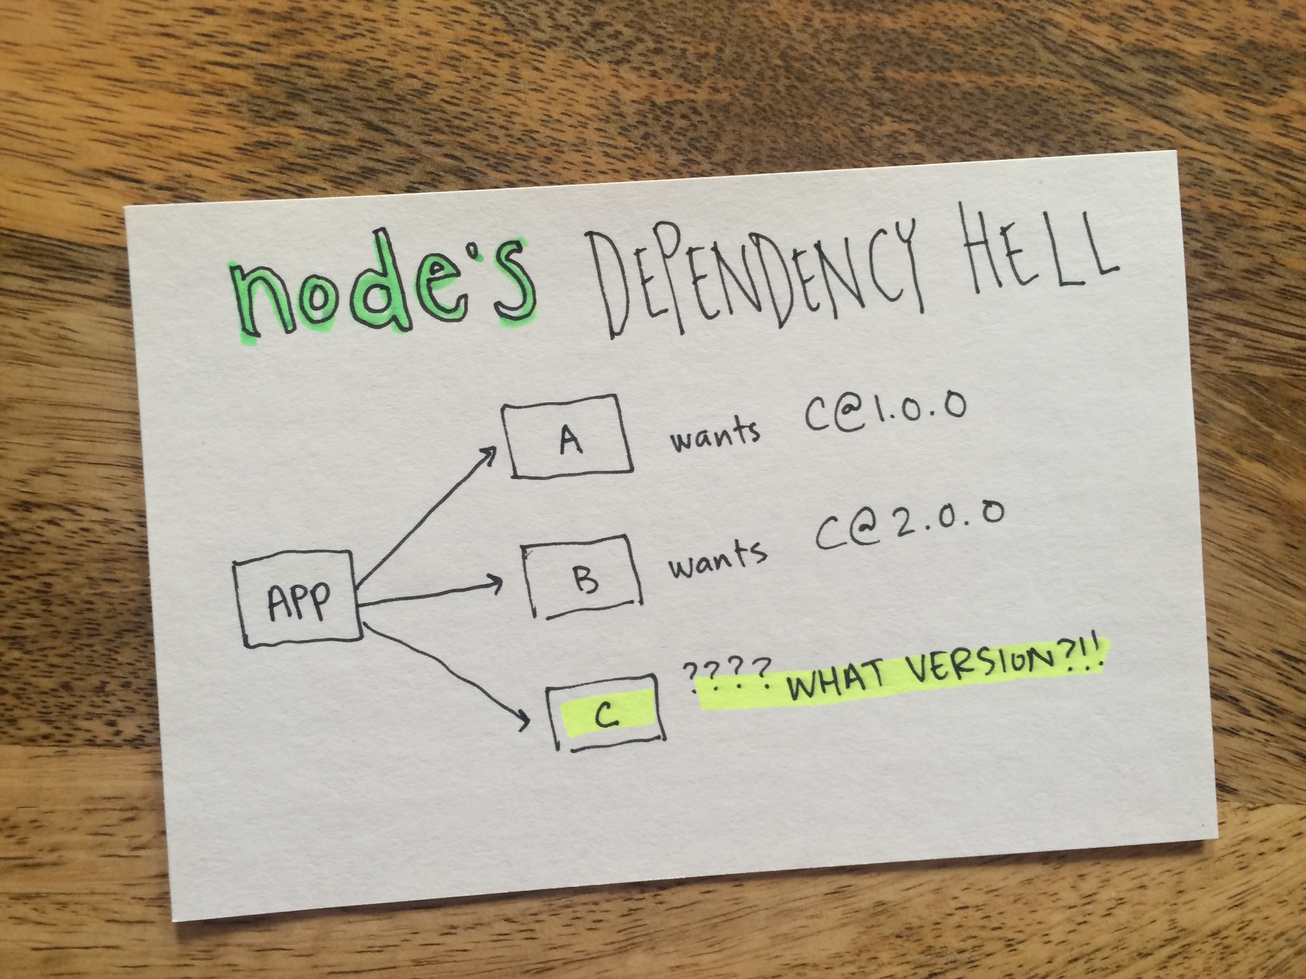 node's DEPENDENCY HELL
A wants C@1.0.0
APP B wants C@2.0.0
C ???? WHAT VERSION?!!